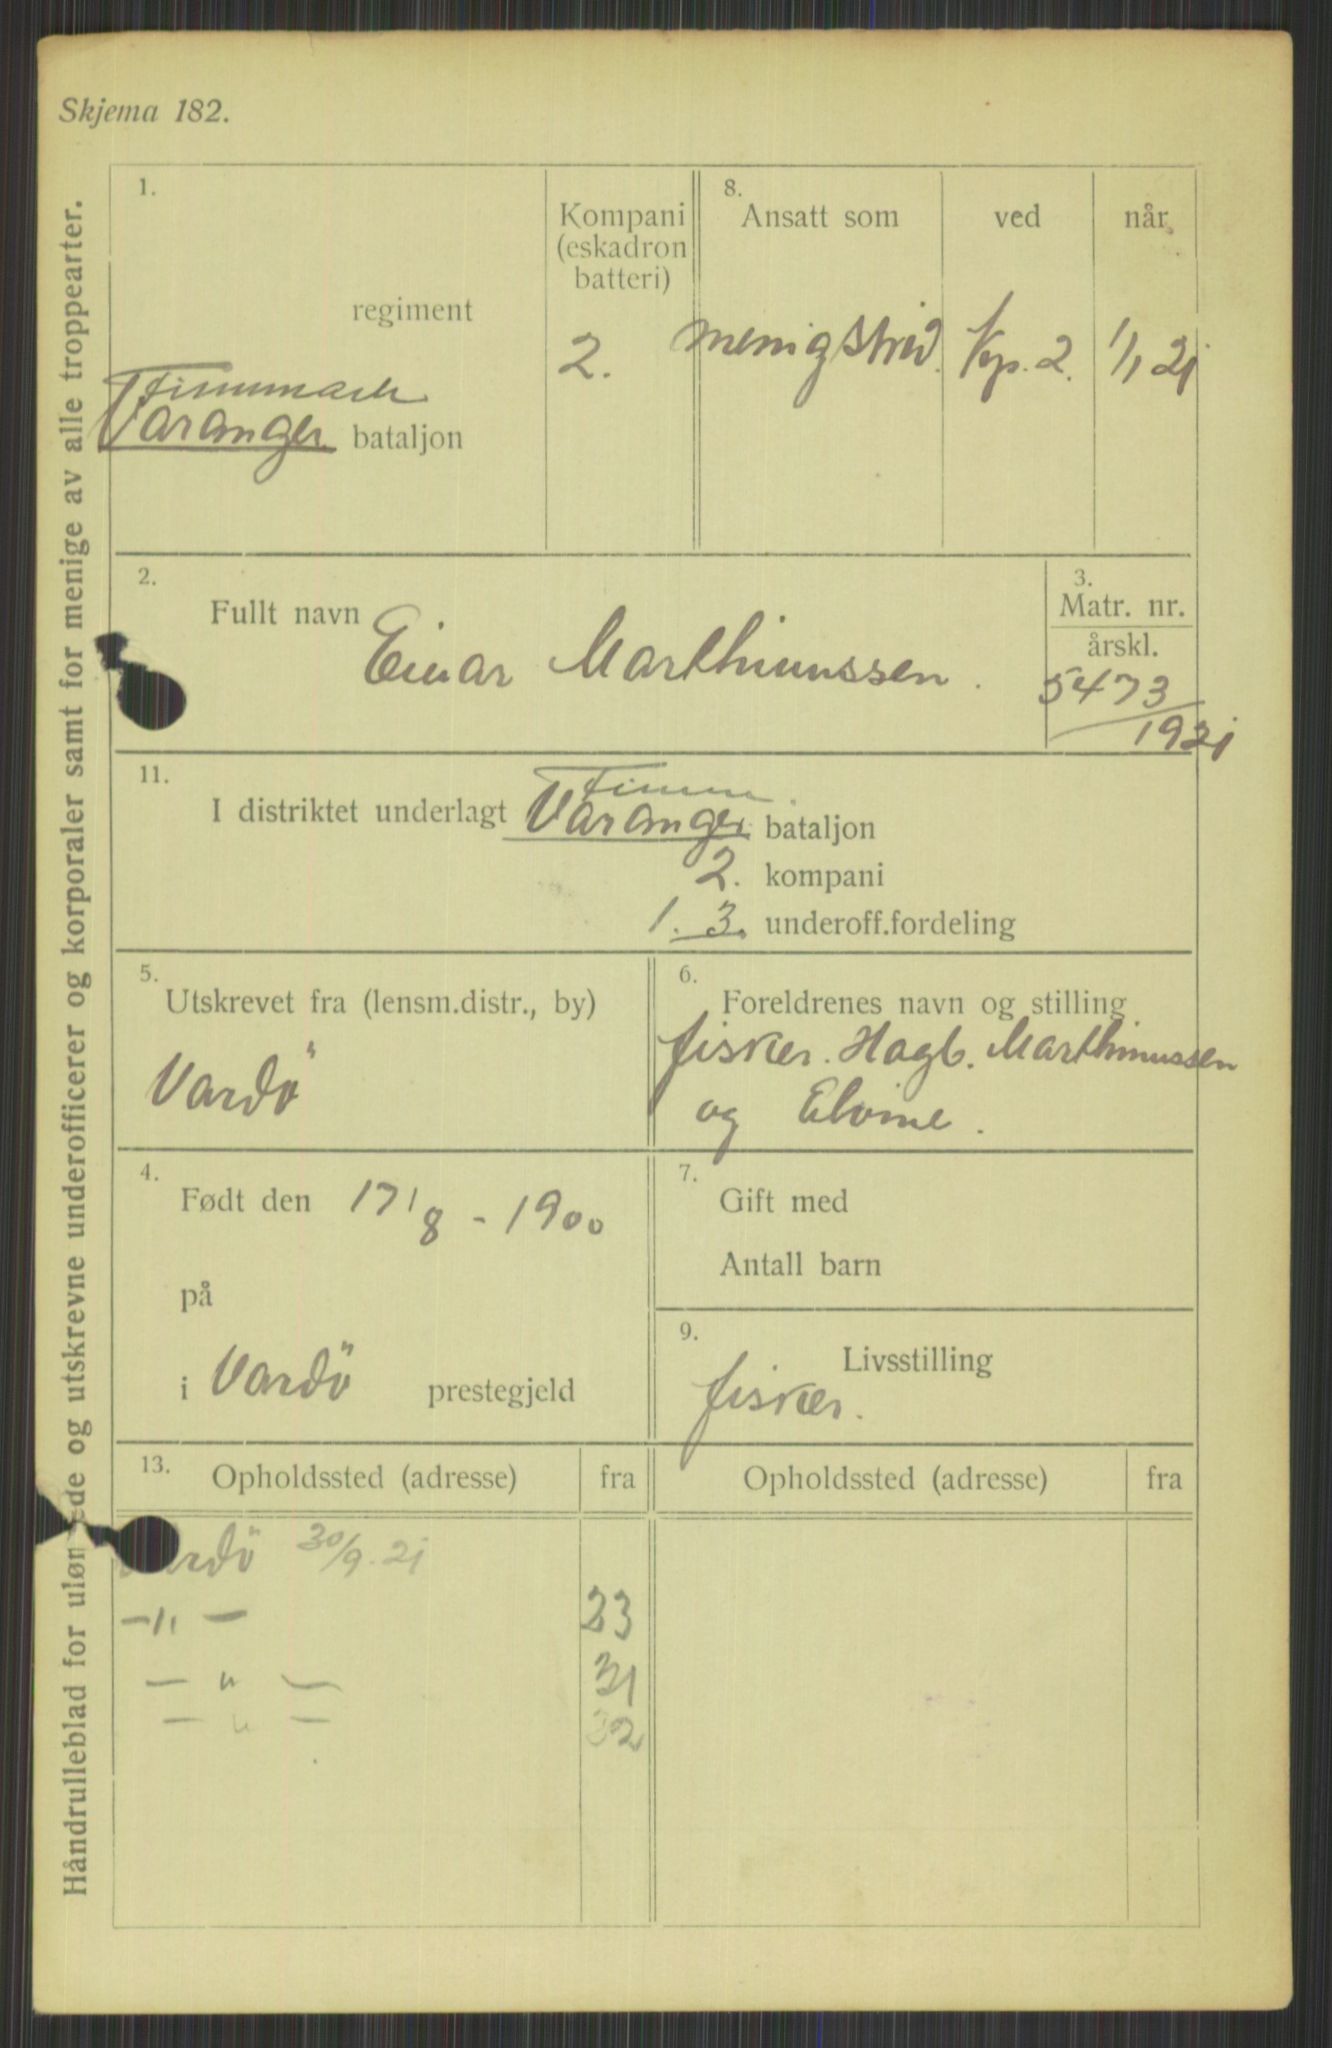 Skjema 182.
Håndrulleblad for uløn ede og utskrevne underofficerer og korporaler samt for menige av alle troppearter.
1.
regiment
Varanger bataljon
Kompani
(eskadron
batteri)
2.
8.
Ansatt som
ved
når
menig strid. Kp. 2. 1/1 21
2.
Fullt navn Einar Marthinussen.
3.
Matr. nr.
årskl.
5473
1921
11.
I distriktet underlagt Varanger bataljon
2. kompani
1. 3. underoff.fordeling
5.
Utskrevet fra (lensm.distr., by)
Vardö
6.
Foreldrenes navn og stilling
fisker. Hagb. Marthinussen
og Elvine.
4.
Født den 17/8 - 1900
på
i Vardö prestegjeld
7.
Gift med
Antall barn
9.
Livsstilling
fisker.
13.
Opholdssted (adresse) fra
Opholdssted (adresse) fra
rdö 30/9. 21
-"- 23
- " - 31
- " - 32